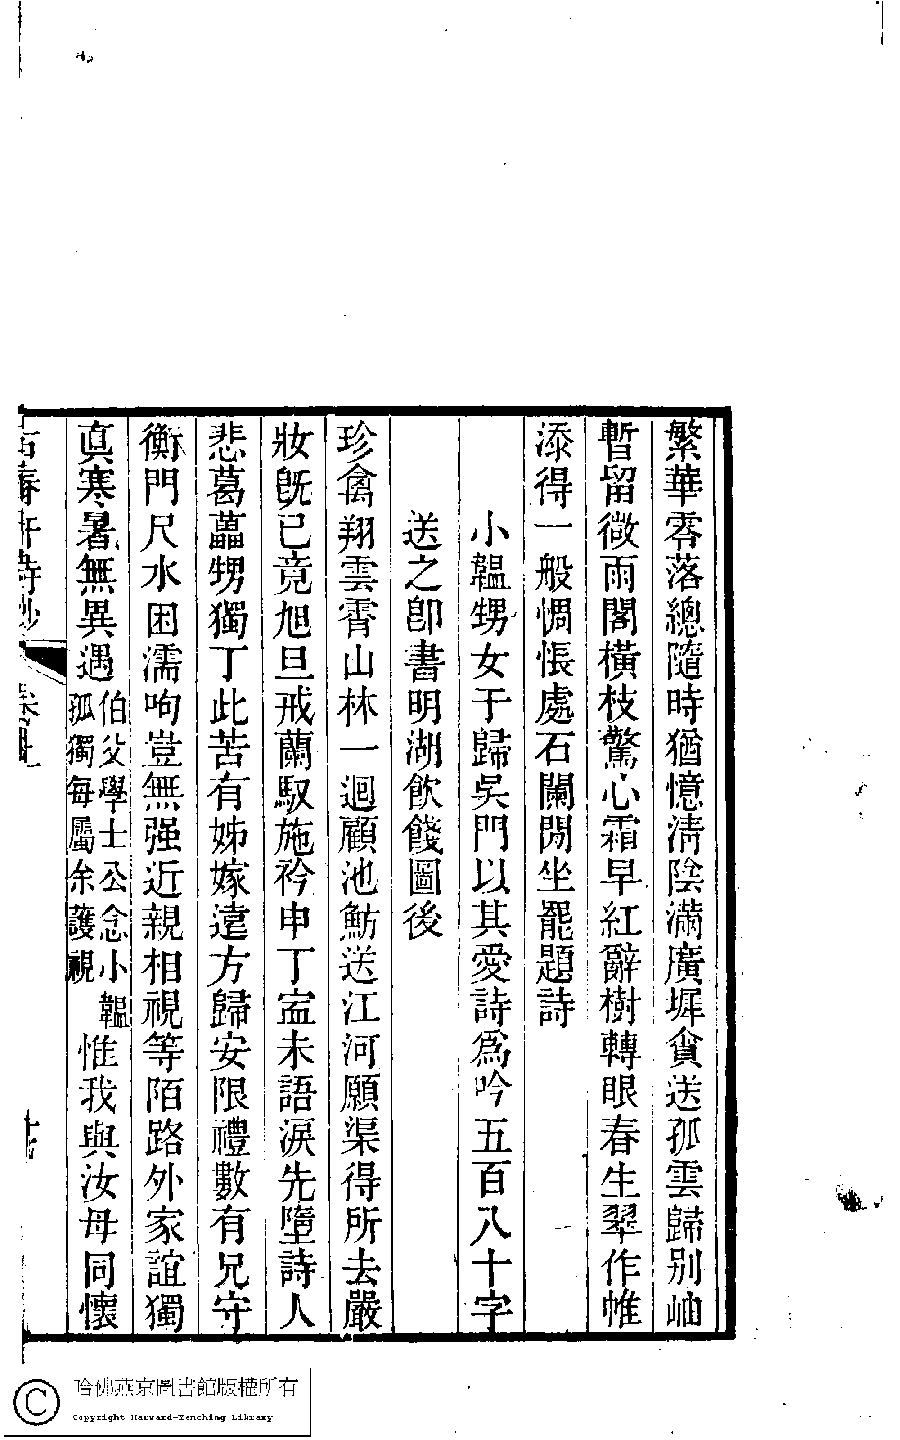 繁華零落總隨時猶憶清陰滿廣墀貪送孤雲歸別岫
暫留微雨閣橫枝驚心霜早紅辭樹轉眼春生翠作帷
添得一般惆悵處石闌閒坐罷題詩
小韞甥女于歸吳門以其愛詩為吟五百八十字
送之卽書明湖飲餞圖後
珍禽翔雲霄山林一迴顧池魴送江河願渠得所去嚴
妝旣已竟旭旦戒蘭馭施衿申丁寍未語淚先墮詩人
悲葛藟甥獨丁此苦有姊嫁遠方歸安限禮數有兄守
衡門尺水困濡呴豈無强近親相視等陌路外家誼獨
眞寒暑無異遇
伯父學士公念小韞
孤獨每屬余護視
惟我與汝母同懷
古春軒詩鈔
卷上
哈佛燕京圖書館版權所有
Copyright Harvard-Yenching Library